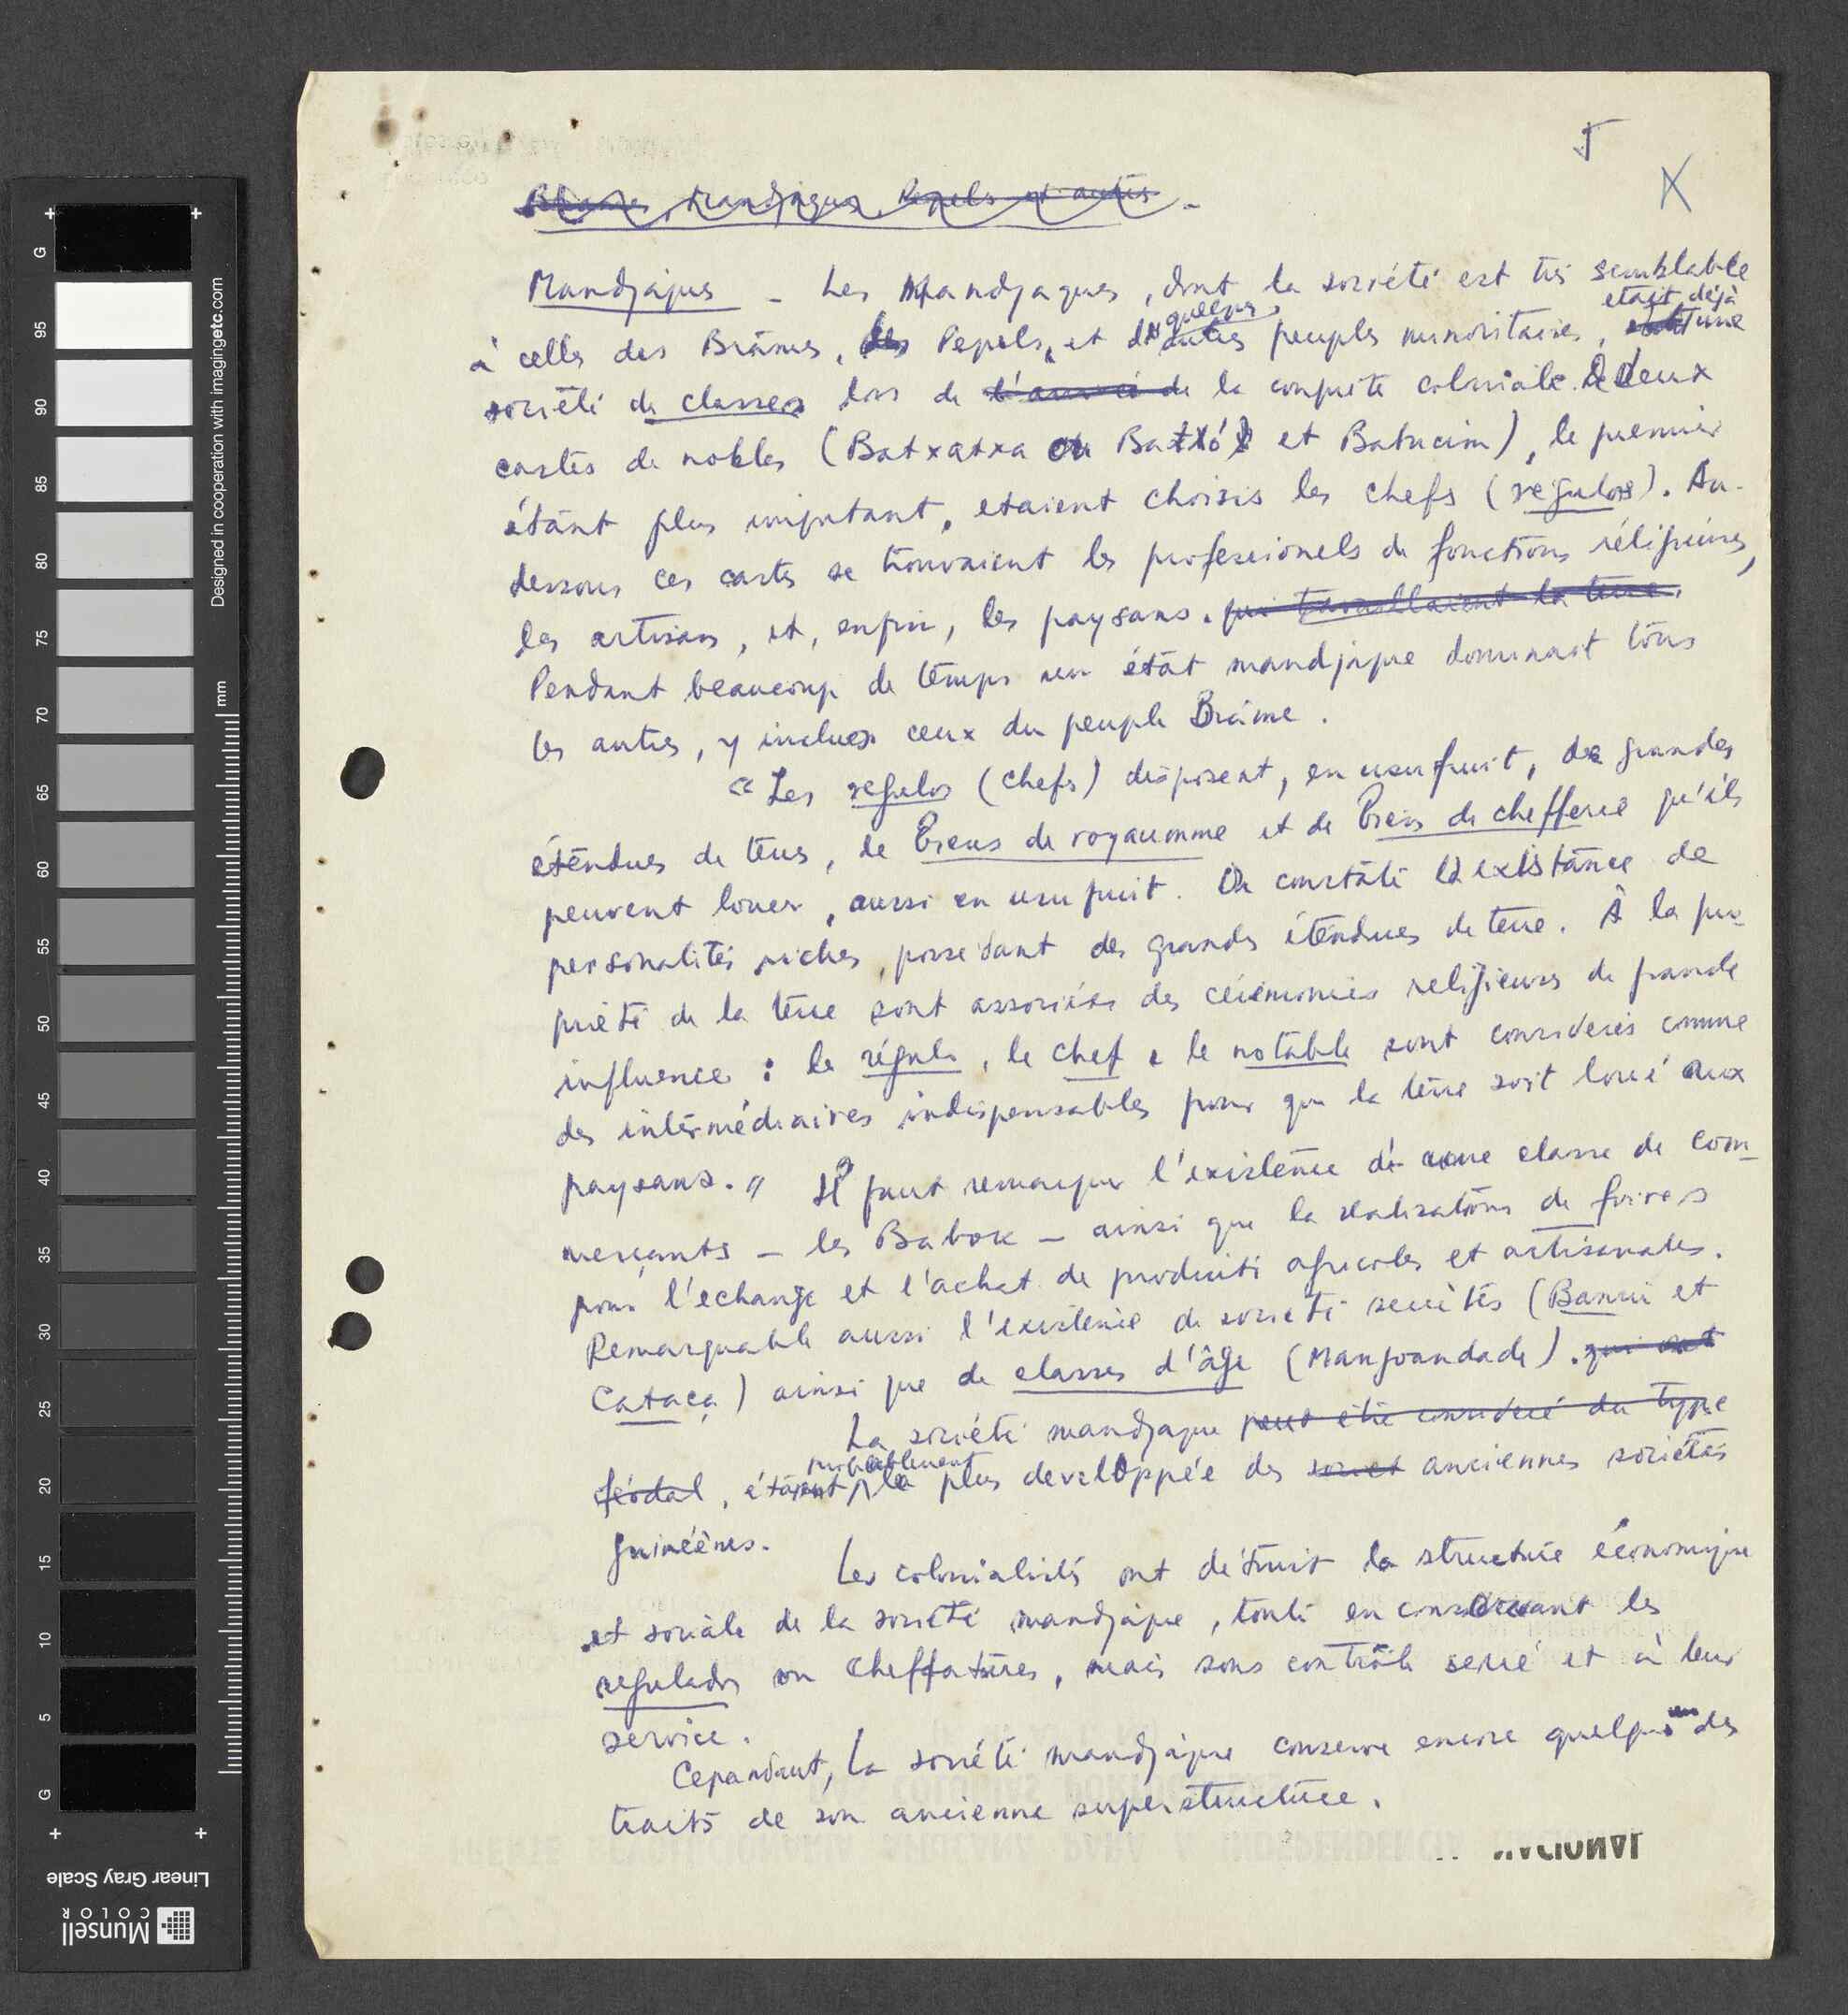 5
X
Brames, Mandjaques, Pepels et autres -
Mandjaques - Les Mandjaques, dont la société est très semblable
à celle des Brâmes, des Pepels, et d'autres quelques peuples minoritaires, était déjà une
société de classes lors de l'arrivée de la conquête coloniale. De deux
castes de nobles (Batxatxa ou Batxó et Babucim), le premier
étant plus important, etaient choisis les chefs (regulos). Au-
dessous ces castes se trouvaient les profesionels de fonctions réligieuses,
les artisans, et, enfin, les paysans. qui travaillaient la terre.
Pendant beaucoup de temps un état mandjaque dominait tous
les autres, y inclues ceux du peuple Brâme.
"Les regulos (chefs) disposent, en usufruit, de grandes
étendues de terres, de biens de royaumme et de biens de chefferie qu'ils
peuvent louer, aussi en usufruit. On constate l'existance de
personalités riches, possedant des grandes étendues de terre. À la pro-
prieté de la terre sont associées des cérémonies religieuses de grande
influence : le régulo, le chef e le notable sont considerés comme
des intermédiaires indispensables pour que la terre soit loué aux
paysans." Il faut remarquer l'existence d'une classe de com-
merçants - les Babok - ainsi que la realisations de foires
pour l'echange et l'achat de produits agricoles et artisanales.
Remarquable aussi l'existence de societé secrètes (Bansu et
Cataça) ainsi que de classes d'âge (Manjoandade). qui ont
La société mandjaque peut être consideré du type
féodal, étaient probablement la plus developpée des societ anciennes sociétés
guinéènes.
Les colonialistes ont détruit la structure économique
et sociale de la societé mandjaque, toute en conservant les
regulados ou cheffatures, mais sous contrôle serré et à leur
service.
Cepandant, la société mandjaque conserve encore quelques uns des
traits de son ancienne superstructure.
NACIONAL
FRENTE REVOLUCIONÁRIA AFRICANA PARA A INDEPENDENCIA
COLONIAS PORTUGUESAS
Designed in cooperation with imagingetc.com
mm
G
95
90
85
80
75
70
65
60
55
50
45
40
35
30
25
20
15
10
5
G
Linear Gray Scale
Munsell
COLOR